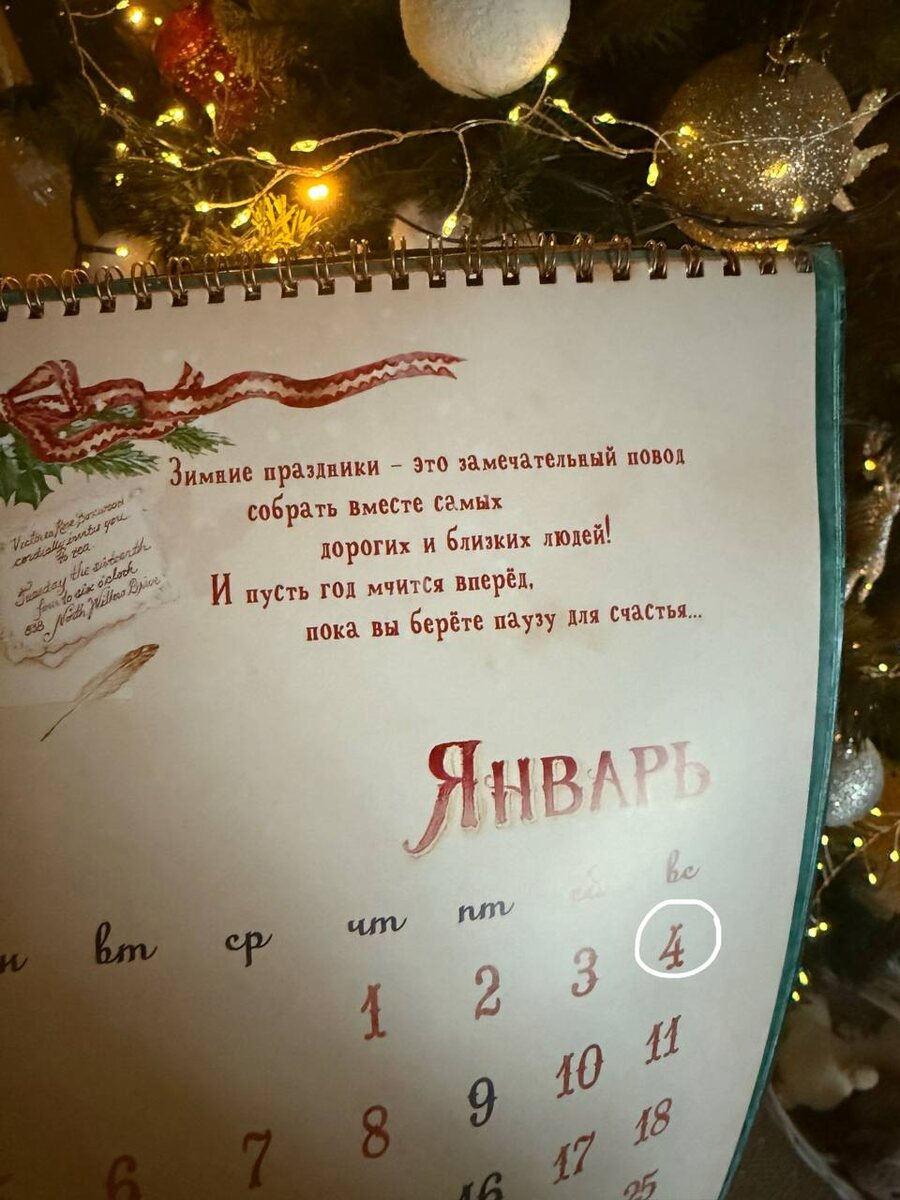 Зимние праздники – это замечательный повод
собрать вместе самых
дорогих и близких людей!
И пусть год мчится вперёд,
пока вы берёте паузу для счастья...
cordially invite you
to tea.
Tuesday the sixteenth
four to six o'clock
838 North Willow Drive
Январь
вт ср чт пт сб вс
1 2 3 4
9 10 11
6 7 8
16 17 18
25